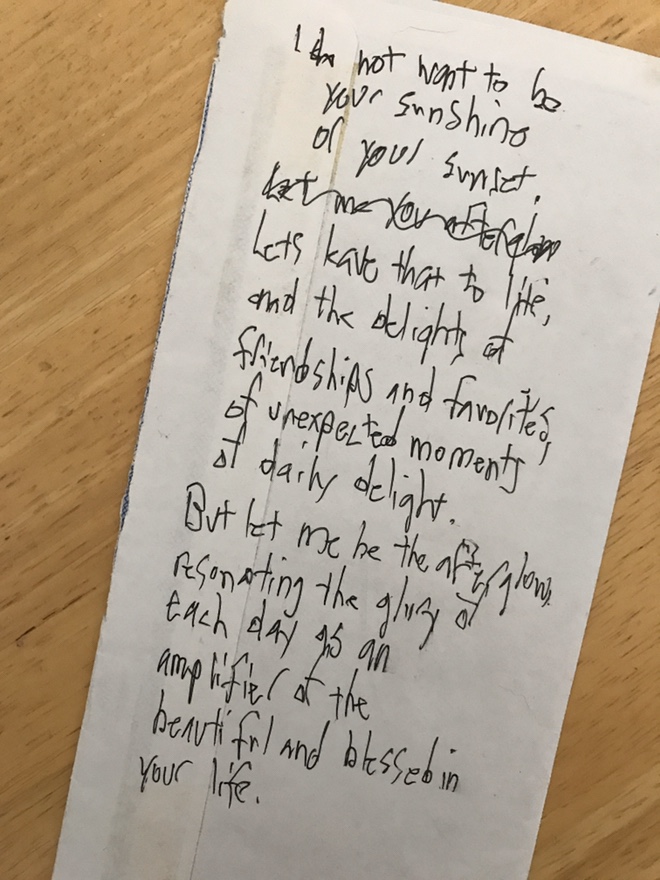 I do not want to be
your sunshine
or your sunset.
Let me your afterglow
Lets leave that to life,
and the delights of
friendships and favorites,
of unexpected moments
of daily delight.
But let me be the afterglow,
resonating the glory of
each day as an
amplifier of the
beautiful and blessed in
your life.